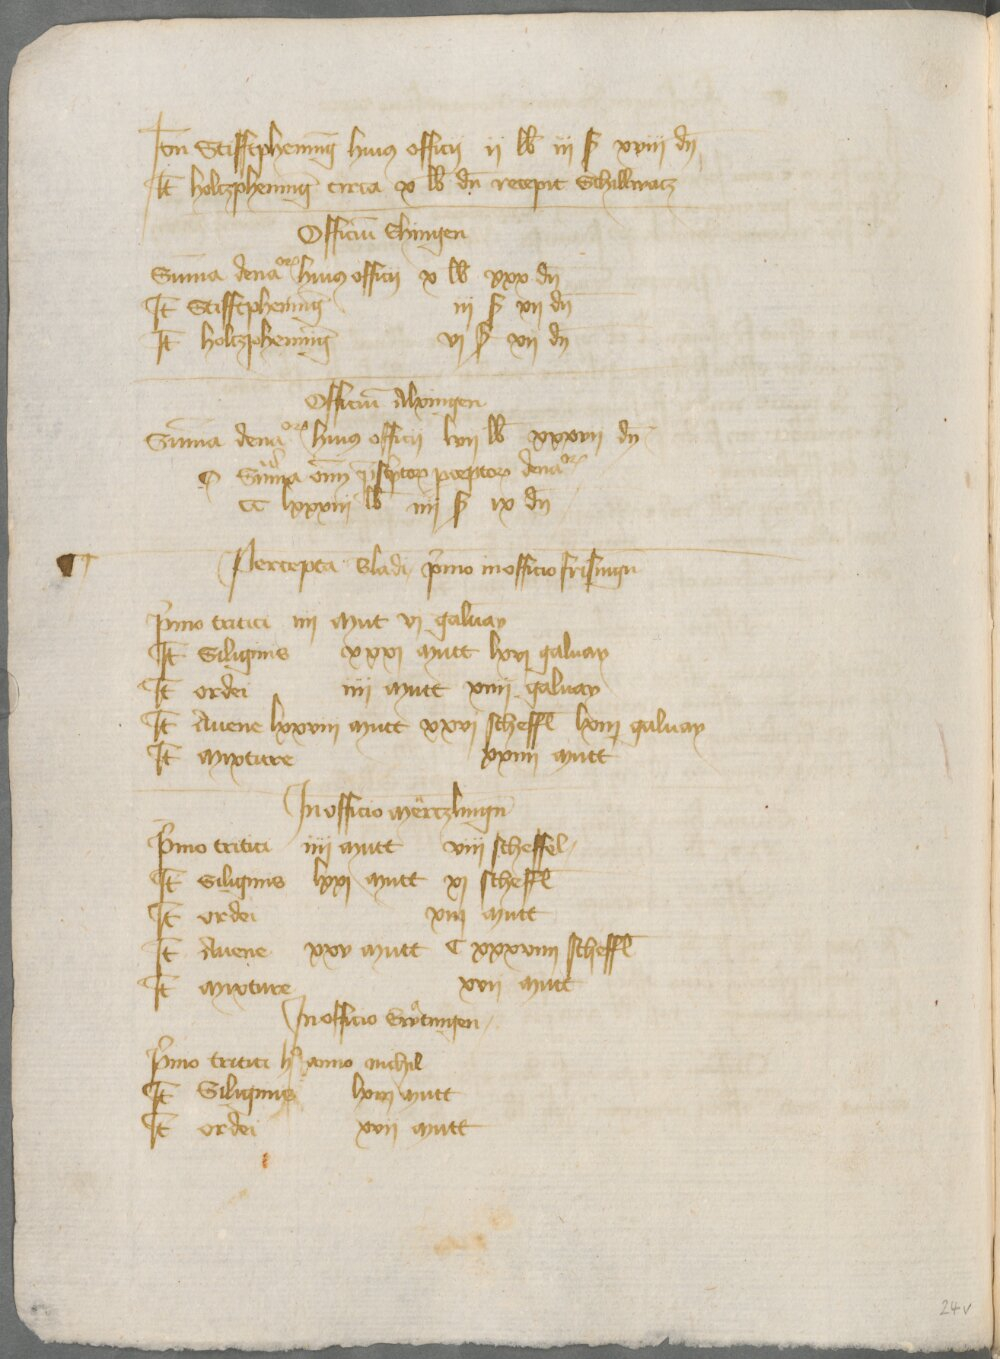 Itm Stifftphening huius officii ii lb iii ß xviii dn
It holtzphening circa x lb dn recepit Schillwatz
Officiu Ehingen
Suma denaor huius officii x lb xxx dn
It Stifftphening iii ß xii dn
It holtzphening vi ß xii dn
Officiu Alxingen
Suma denaor huius officii lvii lb xxxvii dn
Suma oim pscptor pceptor denaor
CC lxxxiii lb iiii ß ix dn
Percepta bladi pmo in officio frisingn
Pmo tritici iiii mut vi galuay
It Siliginis xxxi mutt lxvi galuay
It ordei iiii mutt xiiii galuay
It Avene lxxviii mutt xxvi scheffl lxiii galuay
It mixture xxiiii mutt
In officio mertzlingn
Pmo tritici iiii mutt viii scheffel
It siliginis lxxi mutt xi scheffl
It ordei xiii mutt
It Avene xxv mutt C xxxviiii scheffl
It mixture xvii mutt
In officio Grÿtingen
Pmo tritici h anno nichil
It Siliginis lxiii mutt
It ordei xvii mutt
24v